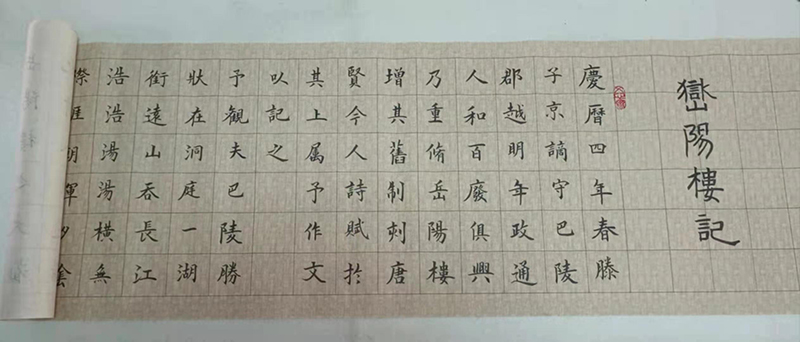 嶽陽樓記
慶暦四年春滕
子京謫守巴陵
郡越明年政通
人和百廢俱興
乃重脩岳陽樓
增其舊制刻唐
賢今人詩賦於
其上属予作文
以記之
予観夫巴陵勝
狀在洞庭一湖
銜遠山吞長江
浩浩湯湯橫無
際涯朝暉夕陰